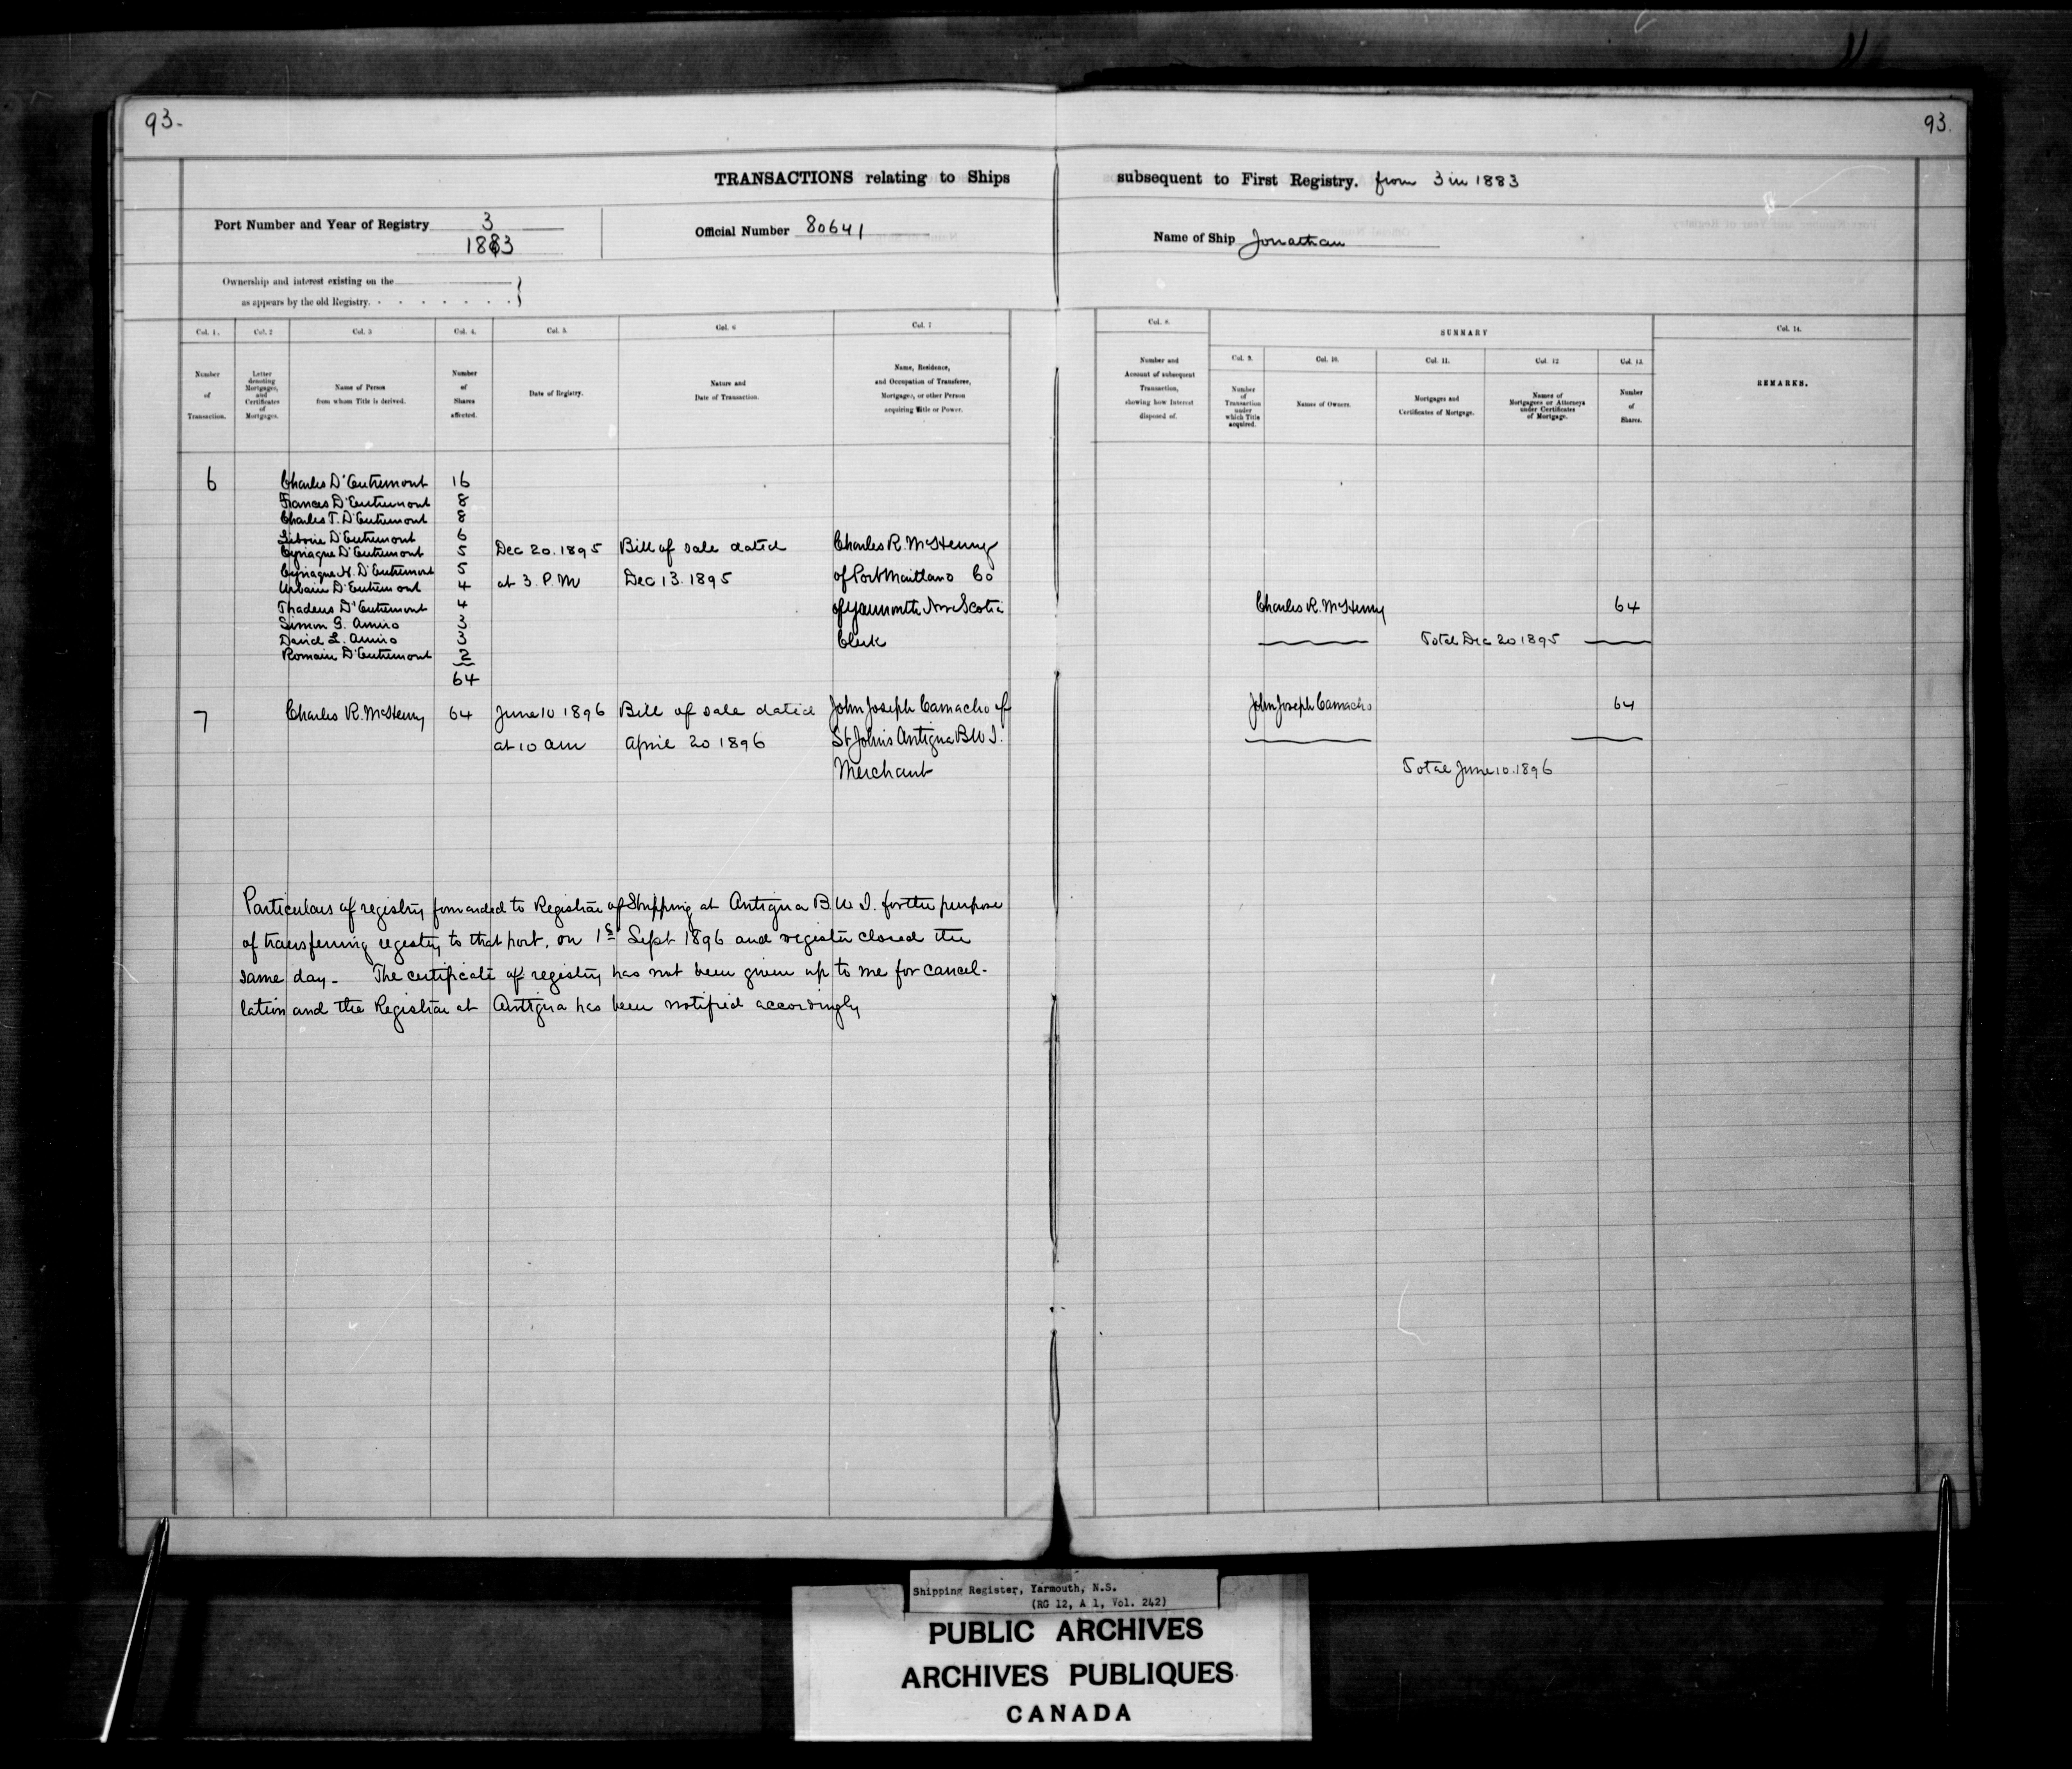 93.
93.
TRANSACTIONS relating to Ships subsequent to First Registry. from 3 in 1883
Port Number and Year of Registry 3
1883
Official Number 80641
Name of Ship Jonathan
Ownership and interest existing on the
as appears by the old Registry. . . . . . . .
Col. 1. Col. 2 Col. 3 Col. 4. Col. 5. Col. 6 Col. 7
Number of Transaction.
Letter denoting Mortgages, and Certificates of Mortgages.
Name of Person from whom Title is derived.
Number of Shares affected.
Date of Registry.
Nature and Date of Transaction.
Name, Residence, and Occupation of Transferee, Mortgagee, or other Person acquiring Title or Power.
Col. 8. SUMMARY Col. 14.
Col. 9. Col. 10. Col. 11. Col. 12. Col. 13.
Number and Account of subsequent Transaction, showing how Interest disposed of.
Number of Transaction under which Title acquired.
Names of Owners.
Mortgages and Certificates of Mortgage.
Names of Mortgagees or Attorneys under Certificates of Mortgage.
Number of Shares.
REMARKS.
6 Charles D'Entremont 16
Frances D'Entremont 8
Charles T. D'Entremont 8
Liborie D'Entremont 6
Cyriaque D'Entremont 5 Dec 20. 1895 Bill of sale dated Charles R. McHenry
Cyriaque H. D'Entremont 5
Urbain D'Entremont 4 at 3. P.M Dec 13. 1895 of Port Maitland Co
Thadeus D'Entremont 4 of Yarmouth Nova Scotia Charles R. McHenry 64
Simon G. Amiro 3
David L. Amiro 3 Clerk Total Dec 20 1895
Romain D'Entremont 2
64
7 Charles R. McHenry 64 June 10 1896 Bill of sale dated John Joseph Camacho of John Joseph Camacho 64
at 10 am April 20 1896 St Johns Antigua B W I.
Merchant Total June 10. 1896
Particulars of registry forwarded to Registrar of Shipping at Antigua B. W I. for the purpose
of transferring registry to that port, on 1st Sept 1896 and register closed the
same day - The certificate of registry has not been given up to me for cancel-
lation and the Registrar at Antigua has been notified accordingly
Shipping Register, Yarmouth, N.S.
(RG 12, A 1, Vol. 242)
PUBLIC ARCHIVES
ARCHIVES PUBLIQUES
CANADA